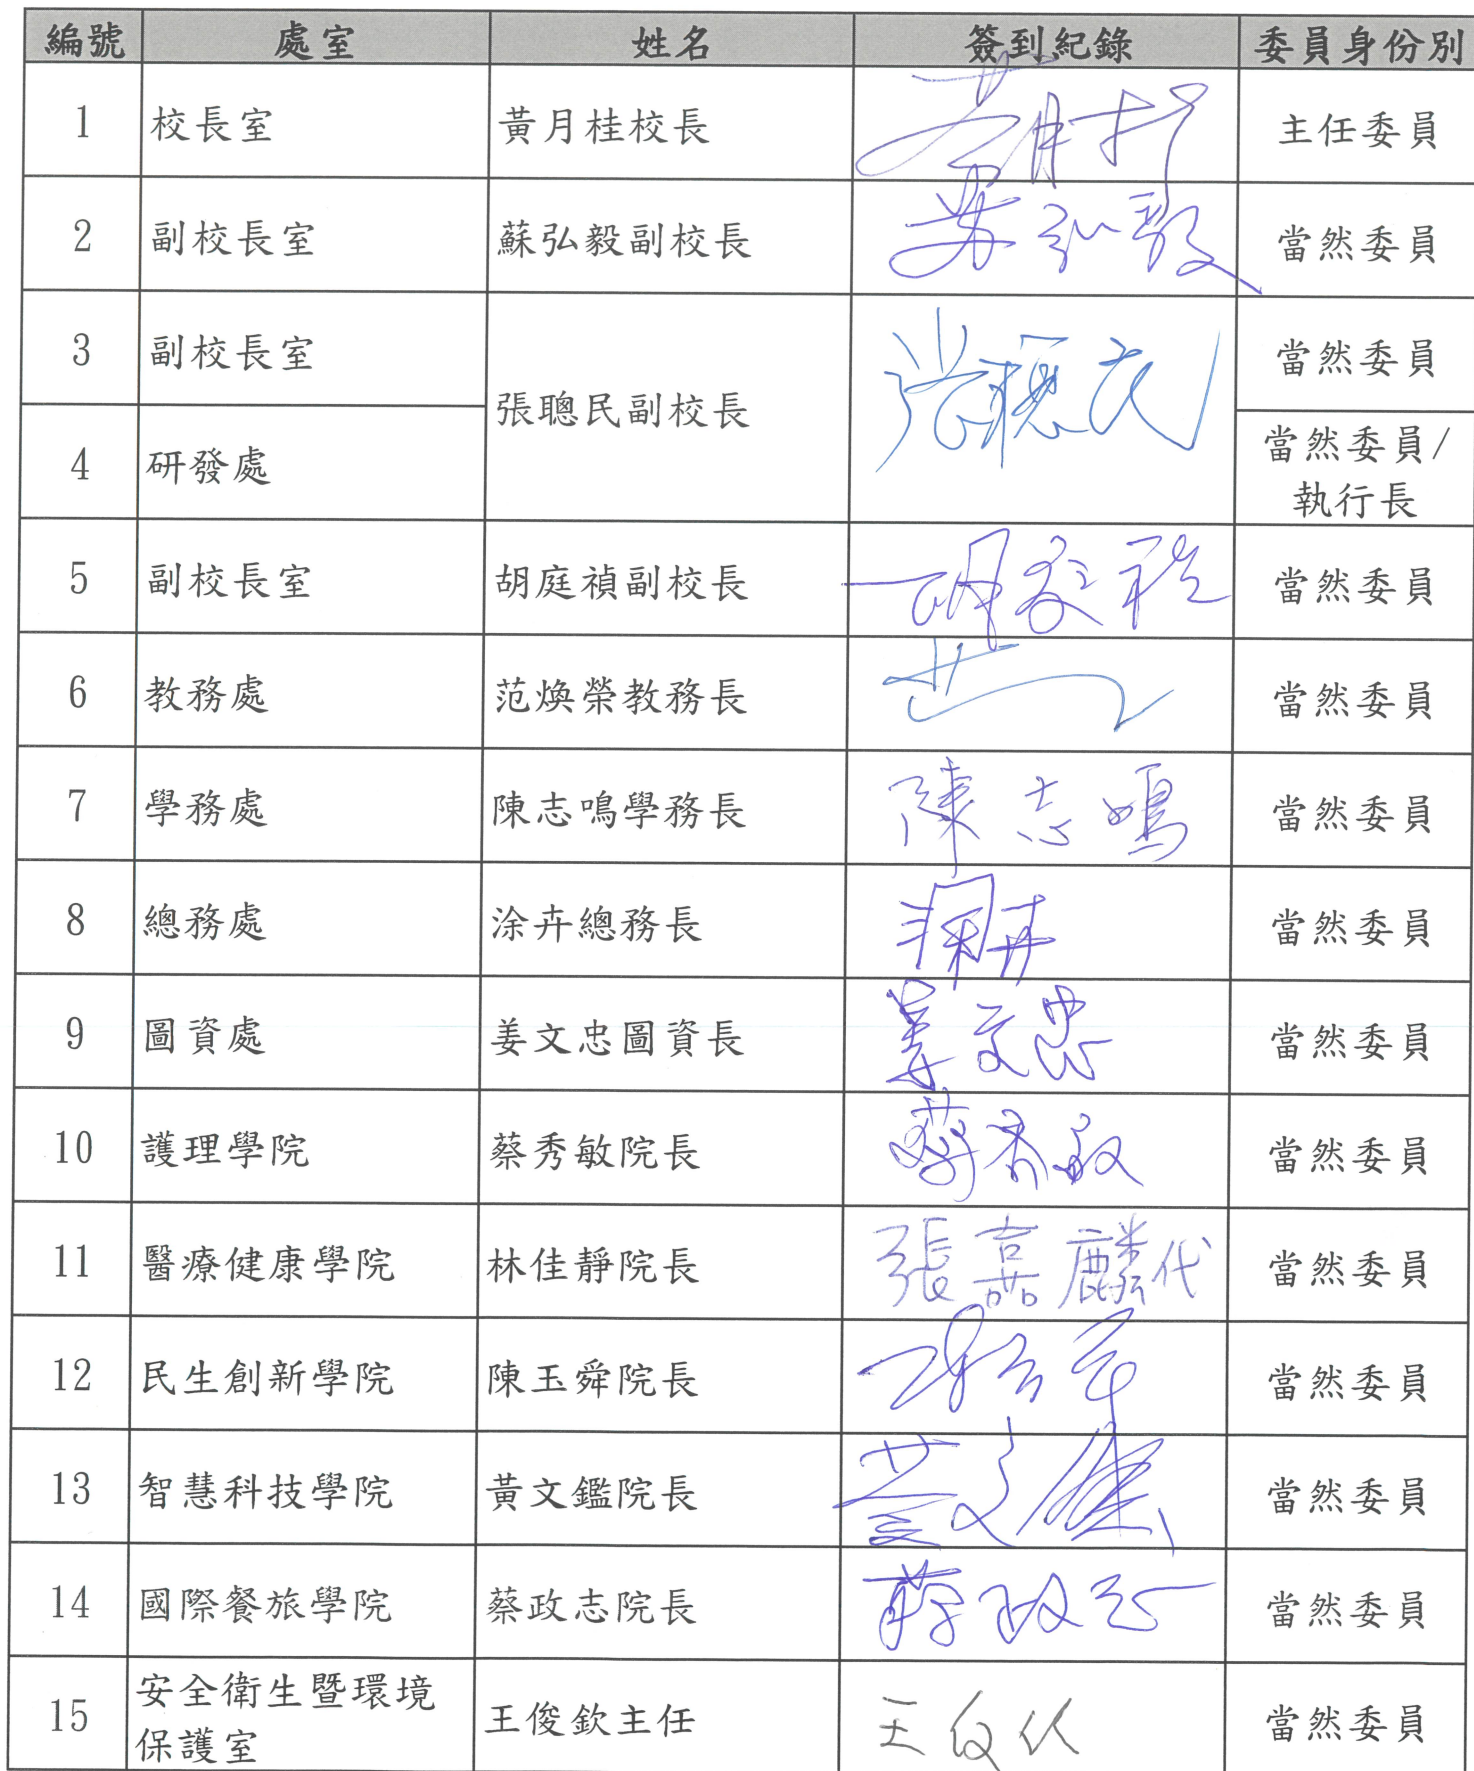 編號 處室 姓名 簽到紀錄 委員身份別
1 校長室 黃月桂校長 黃月桂 主任委員
2 副校長室 蘇弘毅副校長 蘇弘毅 當然委員
3 副校長室 張聰民副校長 張聰民 當然委員
4 研發處 當然委員/
執行長
5 副校長室 胡庭禎副校長 胡庭禎 當然委員
6 教務處 范煥榮教務長 當然委員
7 學務處 陳志鳴學務長 陳志鳴 當然委員
8 總務處 涂卉總務長 涂卉 當然委員
9 圖資處 姜文忠圖資長 姜文忠 當然委員
10 護理學院 蔡秀敏院長 蔡秀敏 當然委員
11 醫療健康學院 林佳靜院長 張嘉麟代 當然委員
12 民生創新學院 陳玉舜院長 當然委員
13 智慧科技學院 黃文鑑院長 黃文鑑 當然委員
14 國際餐旅學院 蔡政志院長 蔡政志 當然委員
15 安全衛生暨環境
保護室 王俊欽主任 王俊欽 當然委員